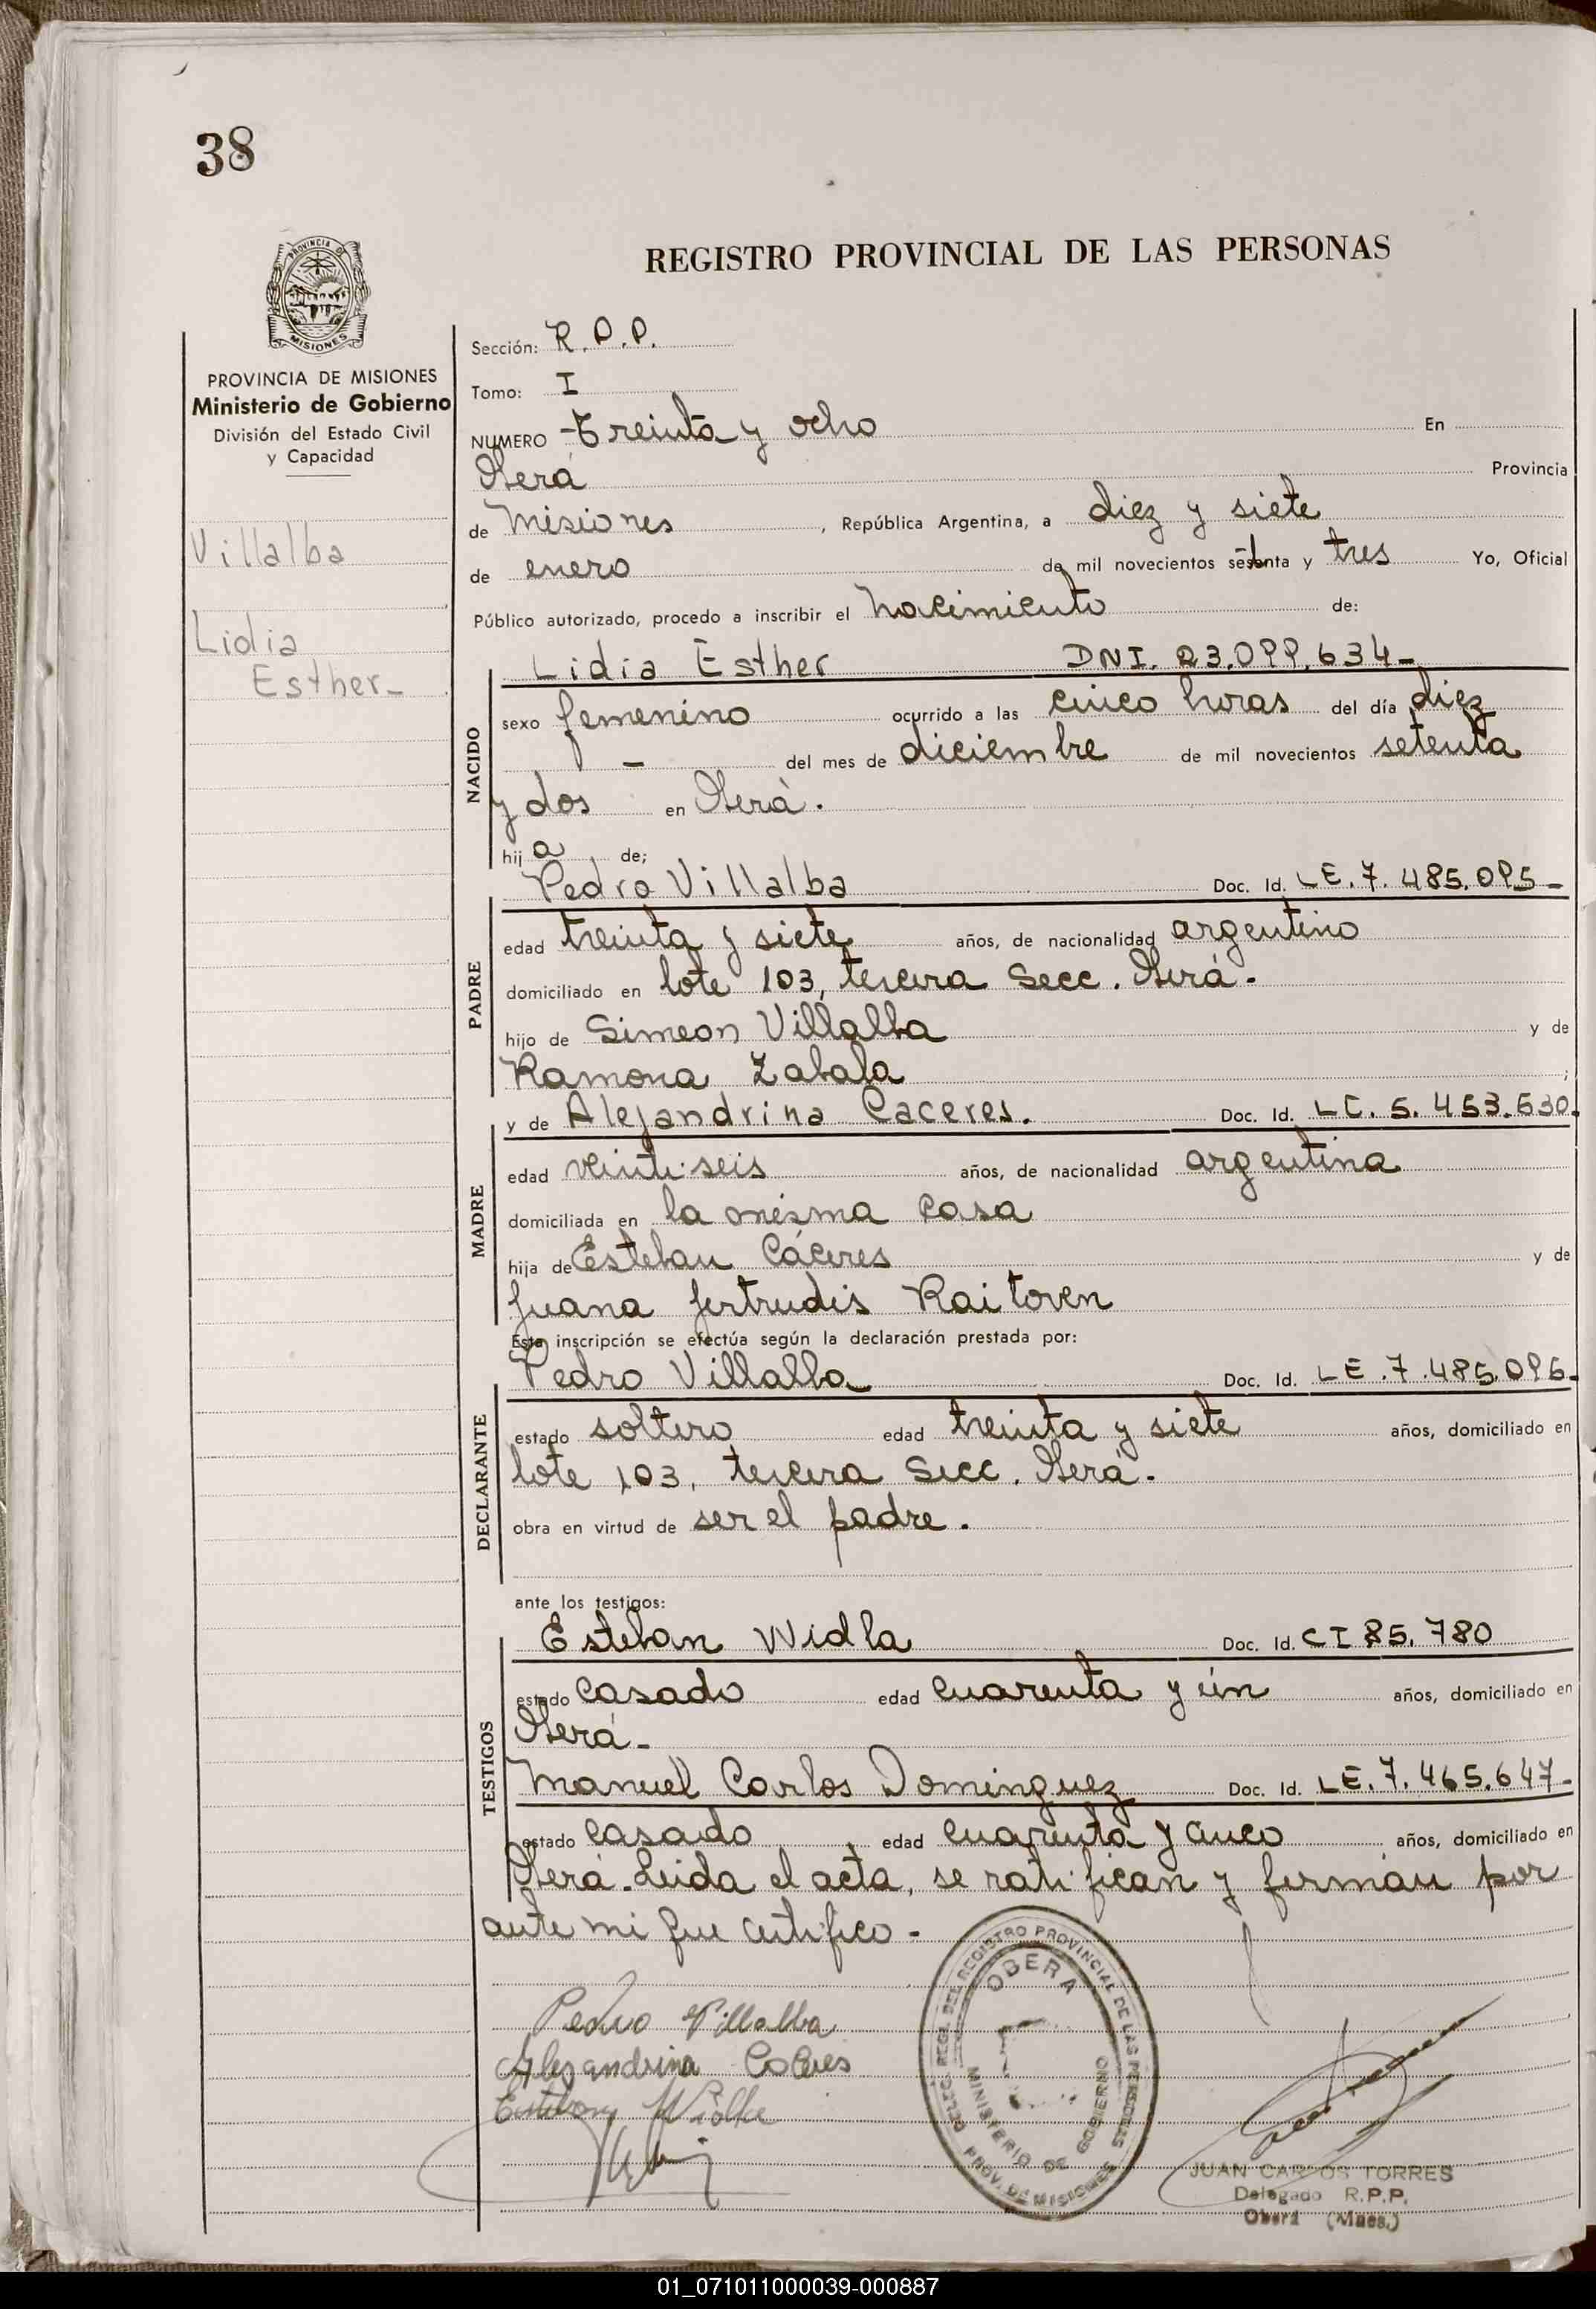 38
REGISTRO PROVINCIAL DE LAS PERSONAS
PROVINCIA DE
MISIONES
PROVINCIA DE MISIONES
Ministerio de Gobierno
División del Estado Civil
y Capacidad
Villalba
Lidia
Esther-
Sección: R.P.P.
Tomo: I
NUMERO Treinta y ocho En
Oberá Provincia
de Misiones , República Argentina, a diez y siete
de enero de mil novecientos setenta y tres Yo, Oficial
Público autorizado, procedo a inscribir el nacimiento de:
Lidia Esther DNI. 23.099.634-
NACIDO
sexo femenino ocurrido a las cinco horas del día diez
- del mes de diciembre de mil novecientos setenta
y dos en Oberá.
hij a de;
Pedro Villalba Doc. Id. LE. 7. 485.095-
PADRE
edad treinta y siete años, de nacionalidad argentino
domiciliado en lote 103, tercera Secc. Oberá-
hijo de Simeon Villalba y de
Ramona Zabala ;
y de Alejandrina Caceres. Doc. Id. LC. 5. 453.530.
MADRE
edad veintiseis años, de nacionalidad argentina
domiciliada en la misma casa
hija de Esteban Cáceres y de
Juana Jertrudis Raitoven
Esta inscripción se efectúa según la declaración prestada por:
Pedro Villalba Doc. Id. LE.7.485.095-
DECLARANTE
estado soltero edad treinta y siete años, domiciliado en
lote 103, tercera Secc. Oberá-
obra en virtud de ser el padre.
ante los testigos:
Esteban Widla Doc. Id. CI 85.780
TESTIGOS
estado casado edad cuarenta y un años, domiciliado en
Oberá-
Manuel Carlos Dominguez Doc. Id. LE.7.465.647-
estado casado edad cuarenta y cinco años, domiciliado en
Oberá. Leida el acta, se ratifican y firman por
ante mi que certifico-
Pedro Villalba
Alejandrina Caceres
Esteban Widla
DEL REGISTRO PROVINCIAL DE LAS PERSONAS
OBERA
MINISTERIO DE GOBIERNO
PROV. DE MISIONES
JUAN CARLOS TORRES
Delegado R.P.P.
Oberá (Mnes.)
01_071011000039-000887